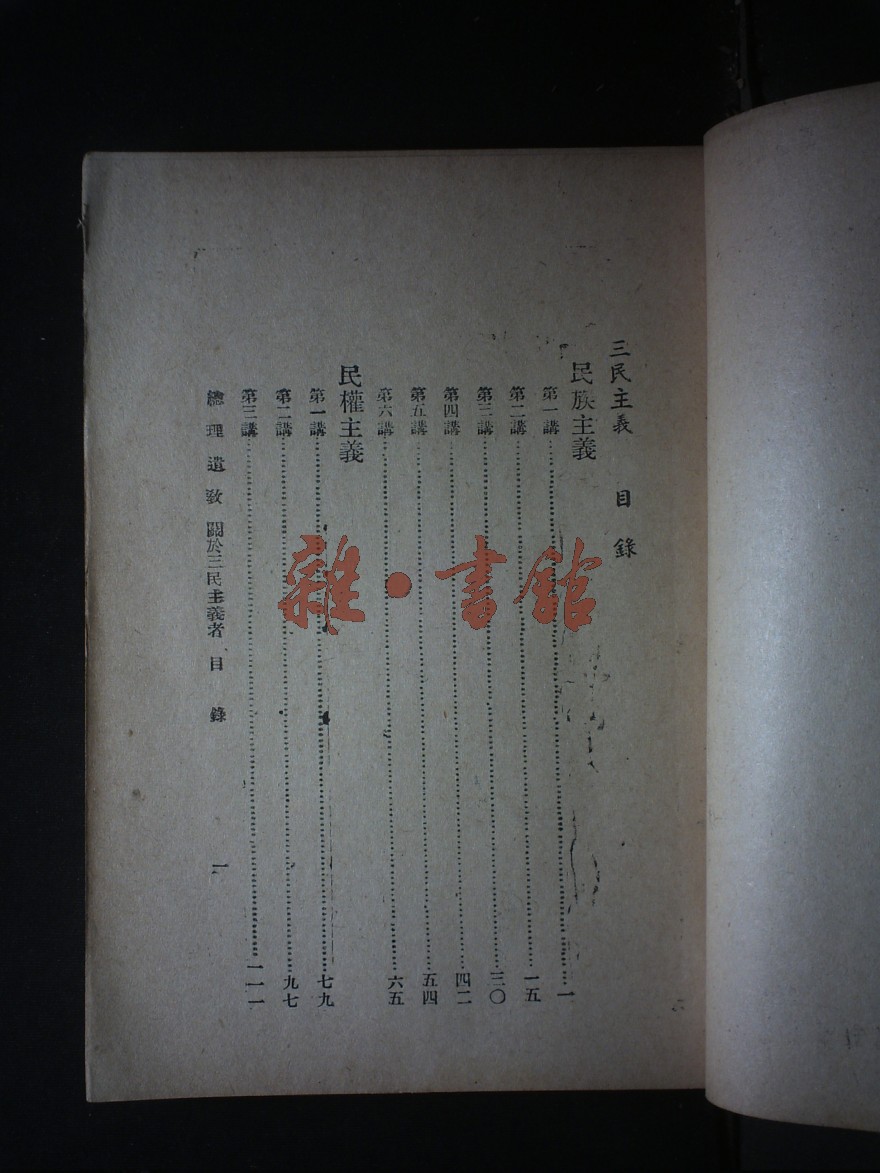 三民主義 目錄
民族主義
第一講……一
第二講……一五
第三講……三〇
第四講……四二
第五講……五四
第六講……六五
民權主義
第一講……七九
第二講……九七
第三講……一一一
總理遺教 關於三民主義者 目錄 一
雜·書館